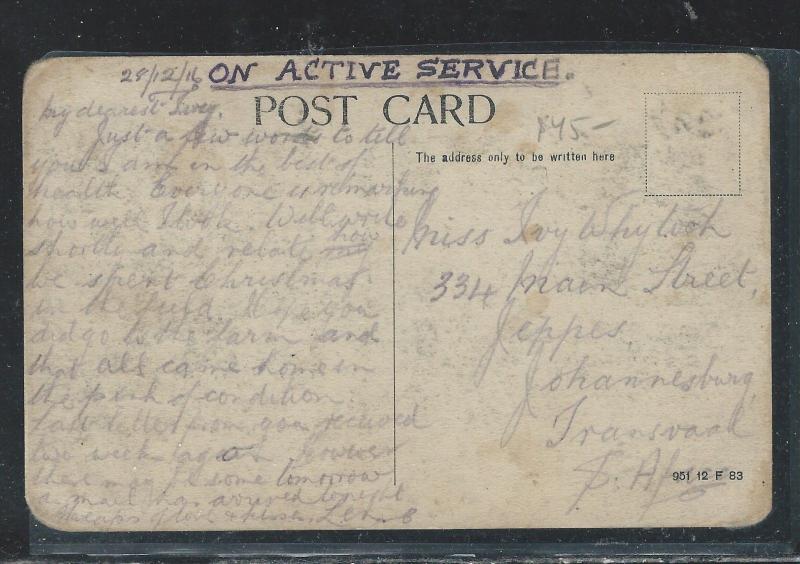 28/12/16 ON ACTIVE SERVICE.
POST CARD
My dearest Ivy,
Just a few words to tell
you I am in the best of
health. Everyone is remarking
how well I look. Will write
shortly and relate how
we spent Christmas
in the field. Hope you
did go to the farm and
that all came home in
the pink of condition.
Last letter from you received
two weeks ago. However
there may be some tomorrow
a mail has arrived tonight
Heaps of love & kisses,
The address only to be written here
Miss Ivy Whytock
334 Main Street,
Jeppes
Johannesburg,
Transvaal
S. Africa
951 12 F 83